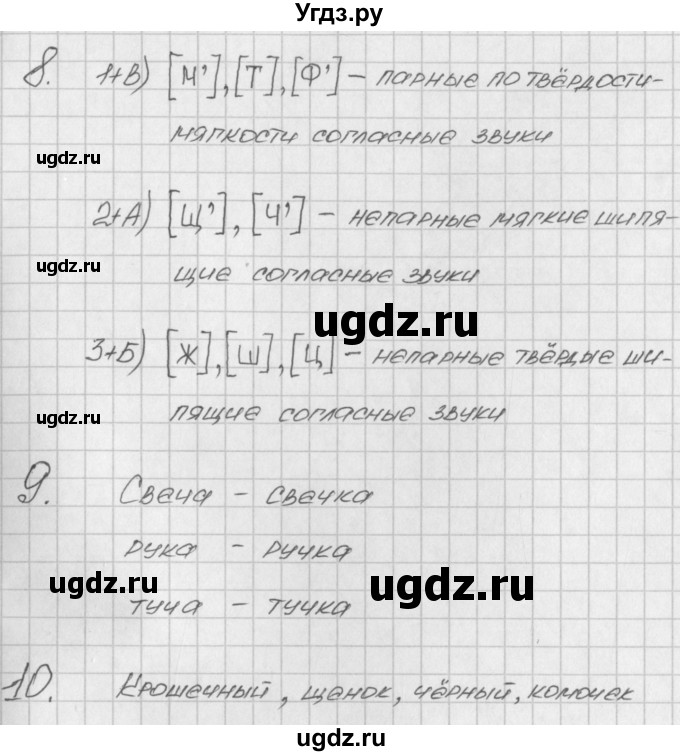 Угдз.ру
8. 1+В) [м'], [т], [ф'] – парные по твёрдости-
мягкости согласные звуки
ugdz.ru
2+А) [щ'], [ч'] – непарные мягкие шипя-
ugdz.ru
щие согласные звуки
ugdz.ru
3+Б) [ж], [ш], [ц] – непарные твёрдые ши-
ugdz.ru
пящие согласные звуки
9. Свеча – свечка
рука – ручка
ugdz.ru
ugdz.ru
туча – тучка
10. Крошечный, щенок, чёрный, комочек
ugdz.ru
ugdz.ru